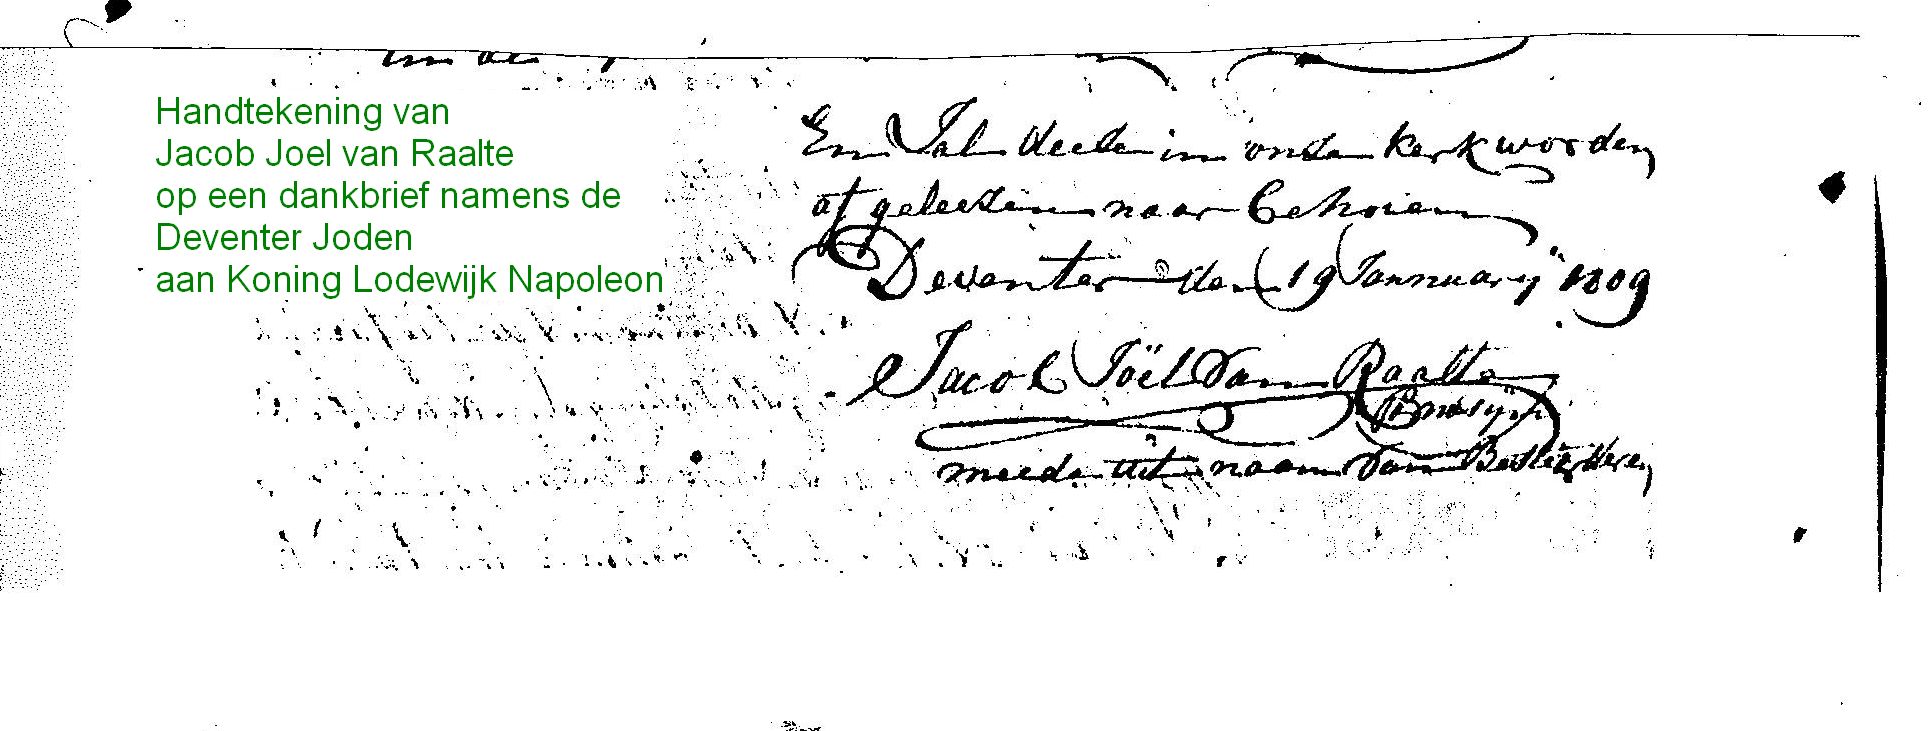 Handtekening van
Jacob Joel van Raalte
op een dankbrief namens de
Deventer Joden
aan Koning Lodewijk Napoleon
En Sal deese in onse kerk worden
af geleesen naar behoren
Deventer den 19 Jannuarij 1809
Jacob Joël van Raalte
meede uit naam van